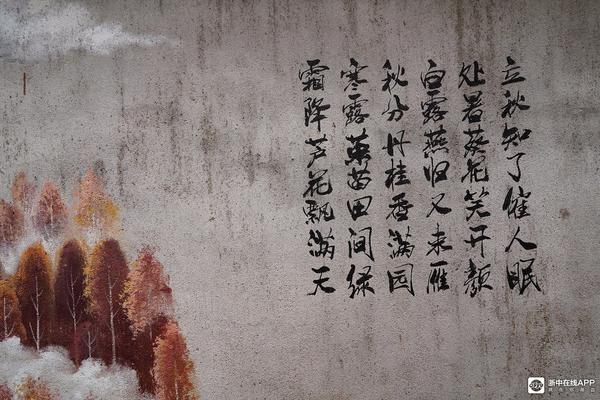 立秋知了催人眠
处暑葵花笑开颜
白露燕归又来雁
秋分丹桂香满园
寒露菜苗田间绿
霜降芦花飘满天
浙中在线APP